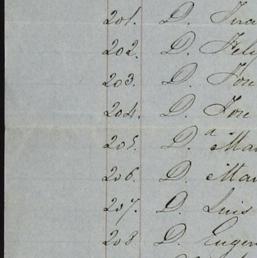 201. D.
202. D.
203. D. Jose
204. D. Jose
205. D.ª Mar
206. D. Man
207. D. Luis
208. D. Eugen